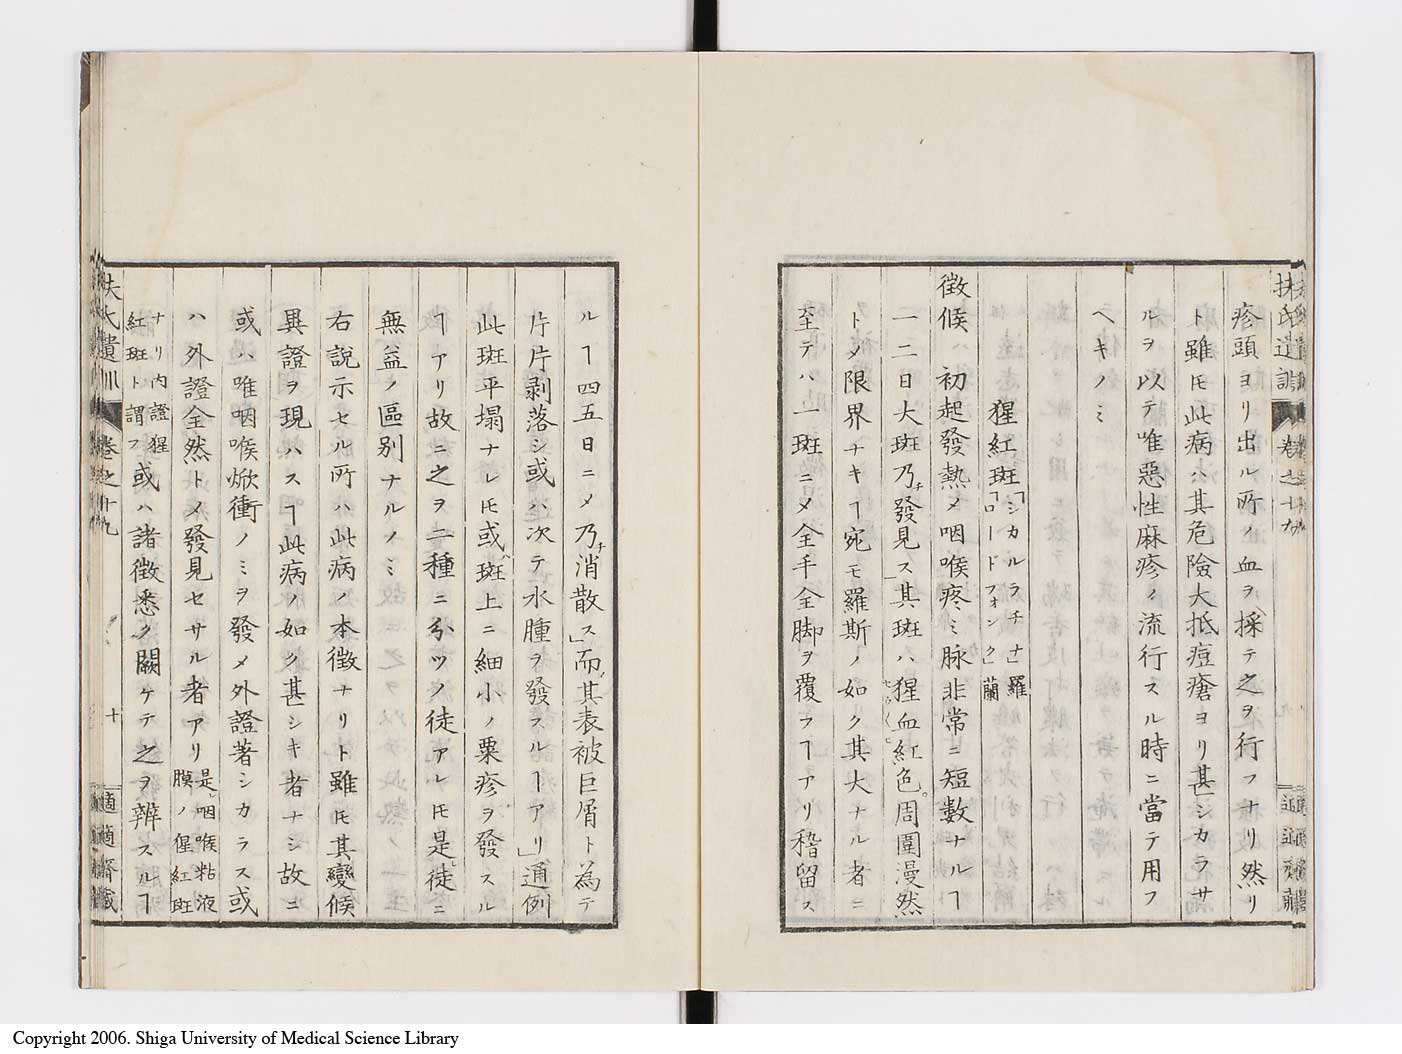 扶氏遺訓 巻之十九
疹頭ヨリ出ル所ノ血ヲ採テ之ヲ行フナリ然リ
ト雖𪜈此病ハ其危險大抵痘瘡ヨリ甚シカラサ
ルヲ以テ唯惡性麻疹ノ流行スル時ニ當テ用フ
ヘキノミ
猩紅斑「シカルラチナ」羅「ロードフォンク」蘭
徴候 初起發熱メ咽喉疼ミ脉非常ニ短數ナルヿ
一二日大斑乃チ發見ス」其斑ハ猩血紅色。周圍漫然
トメ限界ナキヿ宛モ羅斯ノ如ク其大ナル者ニ
至テハ一斑ニメ全手全脚ヲ覆フヿアリ稽留ス
ルヿ四五日ニメ乃チ消散ス」而ノ其表被巨屑ト為テ
片片剥落シ或ハ次テ水腫ヲ發スルヿアリ」通例
此斑平塌ナレ𪜈或ハ斑上ニ細小ノ粟疹ヲ發スル
ヿアリ故ニ之ヲ二種ニ分ツノ徒アレ𪜈是徒ニ
無益ノ區别ナルノミ
右說示セル所ハ此病ノ本徴ナリト雖𪜈其變候
異證ヲ現ハスヿ此病ノ如ク甚シキ者ナシ故ニ
或ハ唯咽喉焮衝ノミヲ發メ外證著シカラス或
ハ外證全然トメ發見セサル者アリ是咽喉粘液膜ノ猩紅斑
ナリ内證猩紅斑ト謂フ或ハ諸徴悉ク闕ケテ之ヲ辨スルヿ
扶氏遺訓 巻之十九 十 適適齋藏
Copyright 2006. Shiga University of Medical Science Library